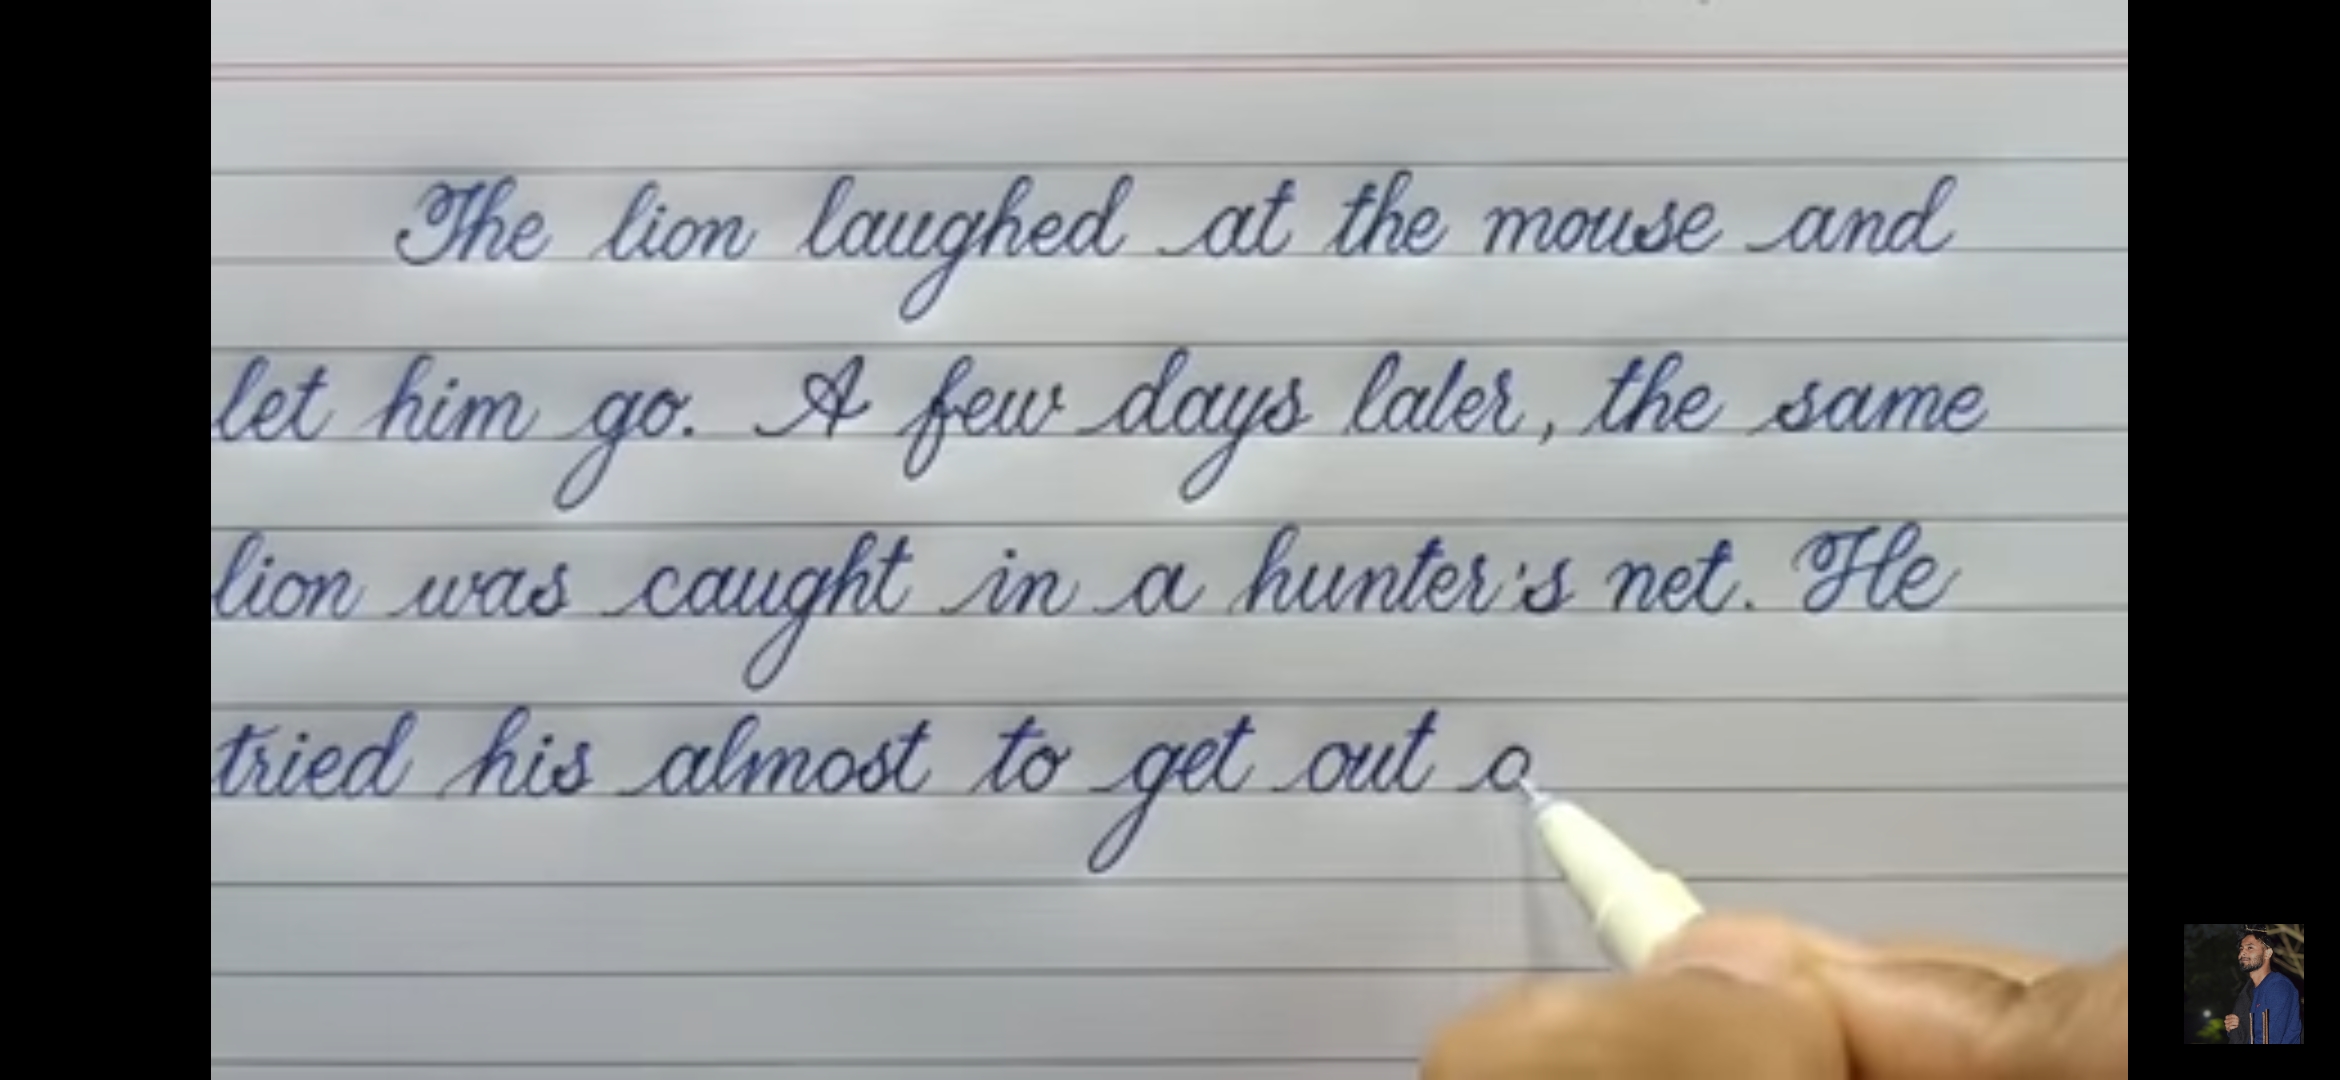 The lion laughed at the mouse and
let him go. A few days later, the same
lion was caught in a hunter's net. He
tried his almost to get out o